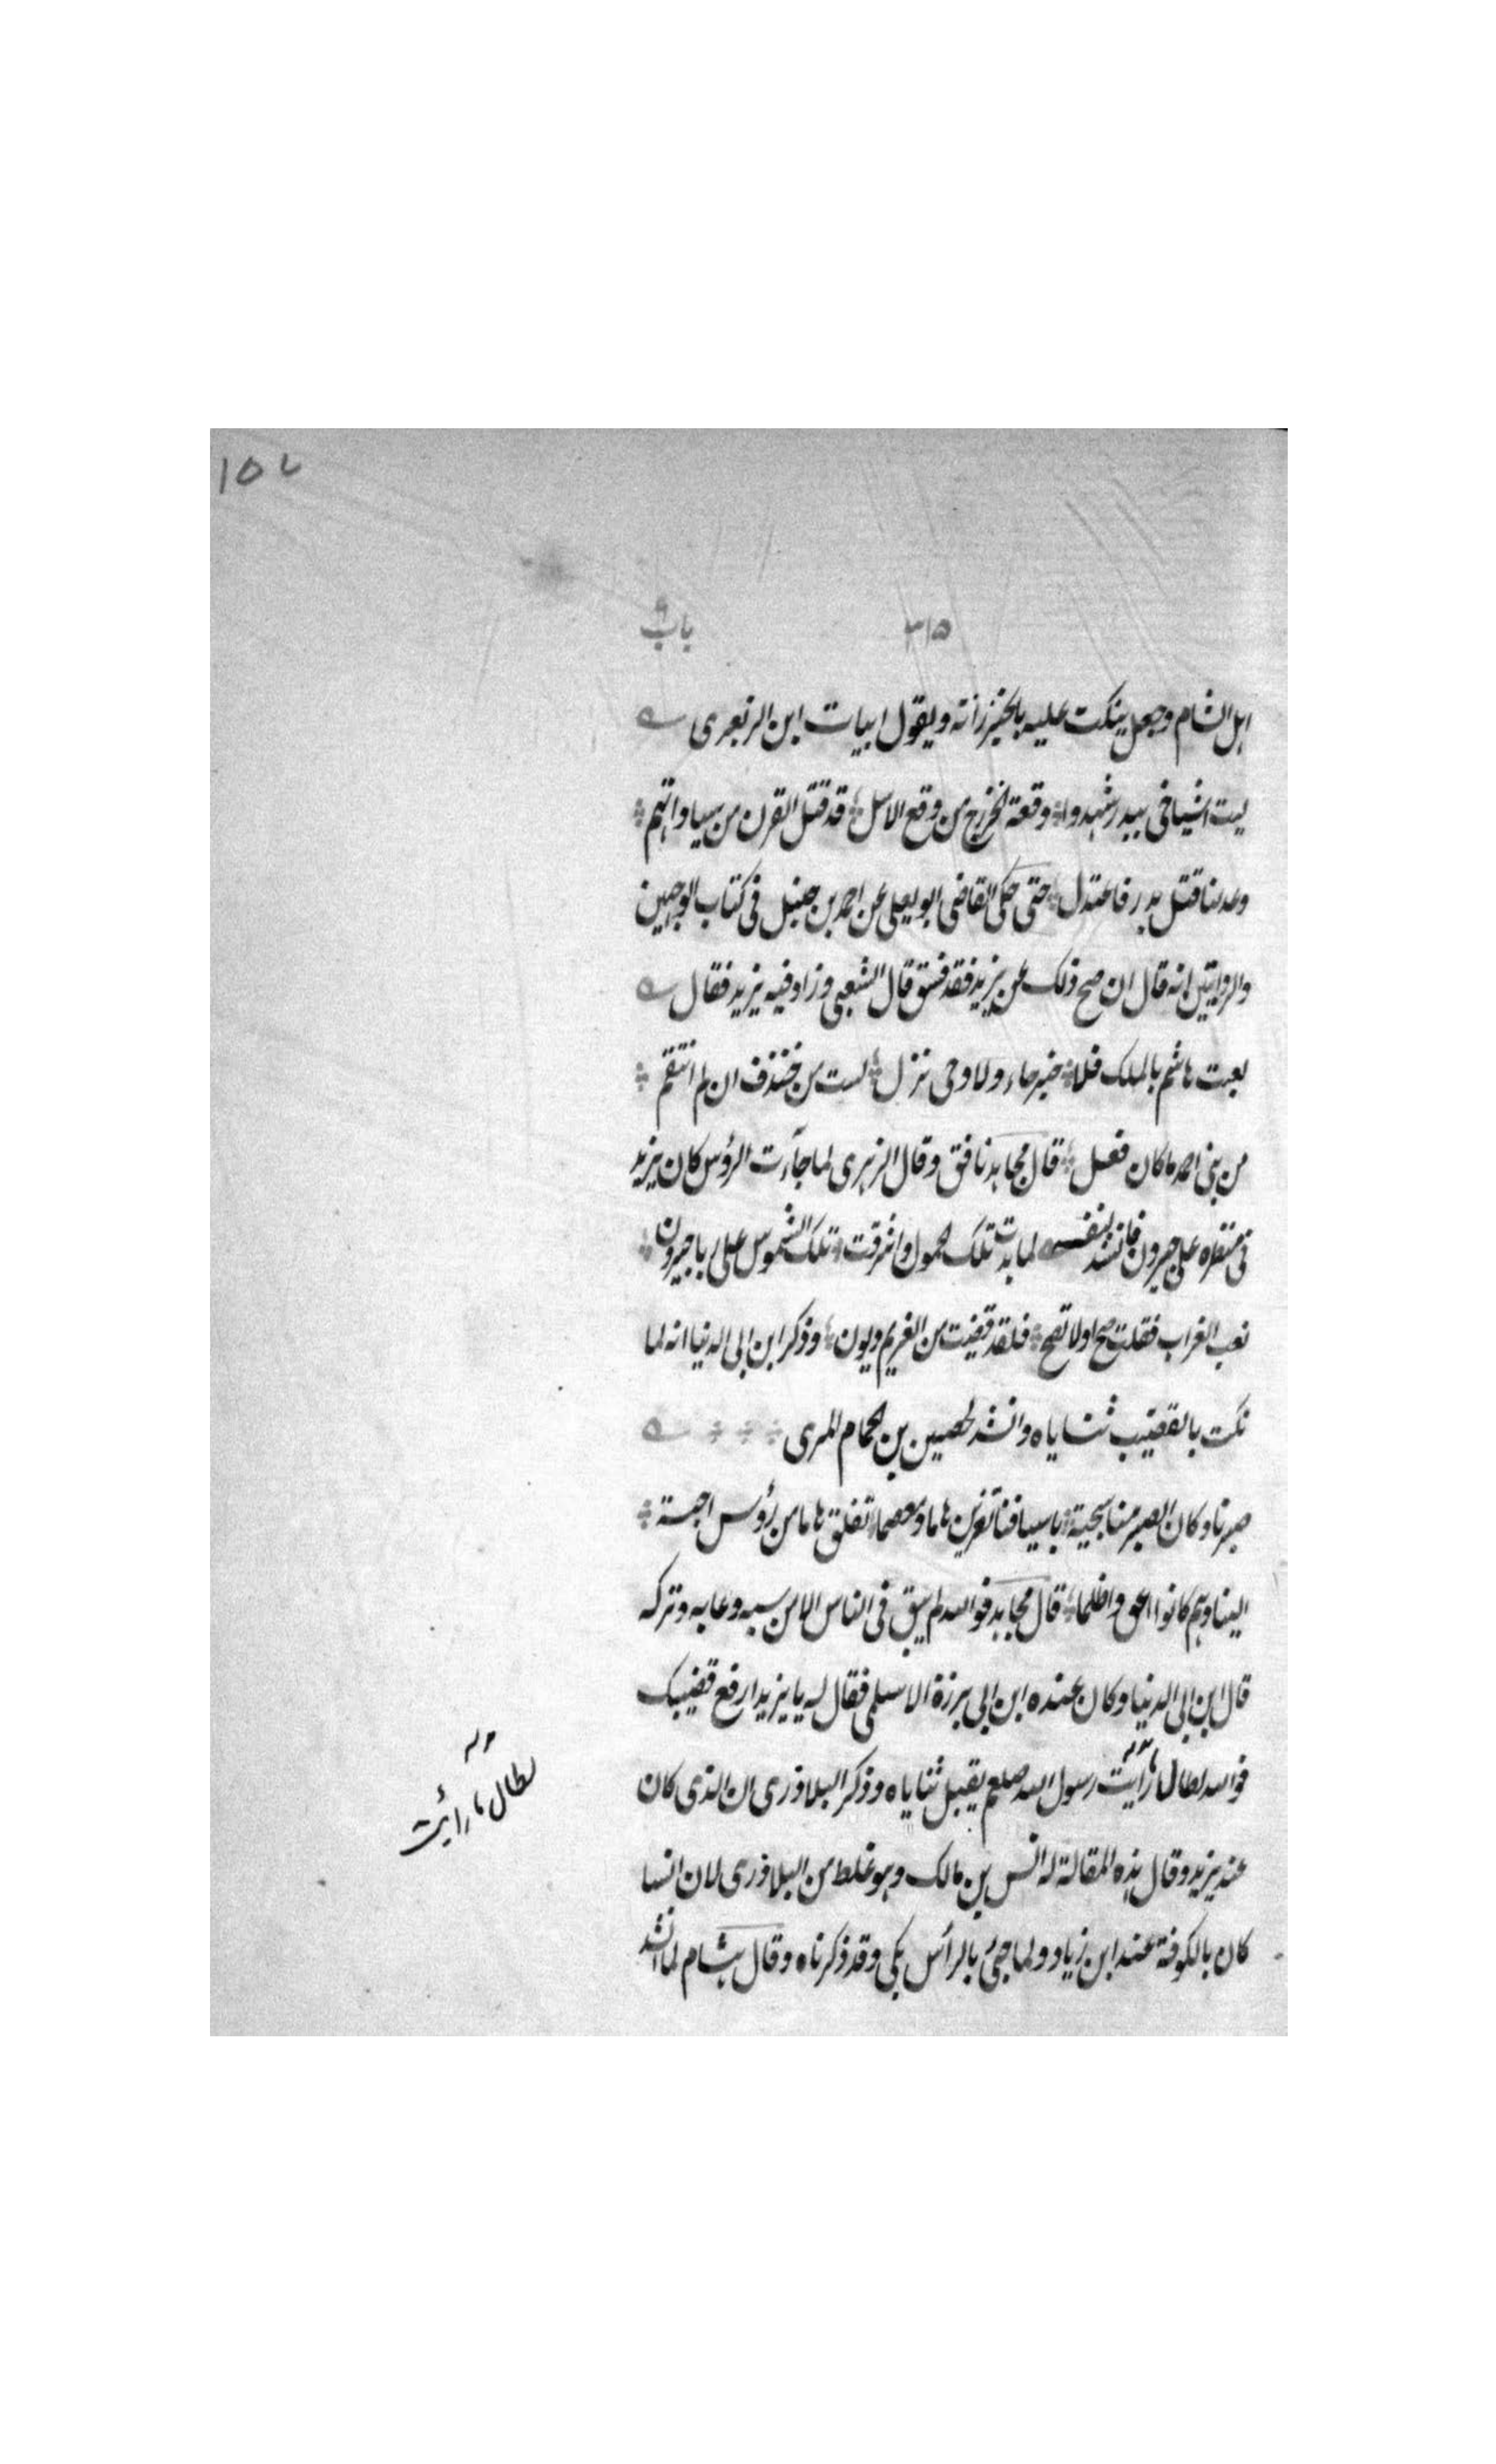 ١٥٧
٣١٥ باب ٩
اہل الشام وجعل ینکت علیہ بالخیزرانۃ ویقول ابیات ابن الزبعری
لیت اشیاخی ببدر شہدوا وقعۃ الخزرج من وقع الاسل قد قتل القرن من سیاداتہم
وعدلنا قتل بدر فاعتدل حتی حکی القاضی ابو یعلی عن احمد بن حنبل فی کتاب الوجہین
والروایتین انہ قال ان صح ذلک عن یزید فقد فسق قال الشعبی وزاد فیہ یزید فقال
لعبت ہاشم بالملک فلا خبر جاء ولا وحی نزل لست من خندف ان لم انتقم
من بنی احمد ما کان فعل قال مجاہد نافق وقال الزہری لما جآءت الرؤس کان یزید
فی منظرہ علی جیرون فانشد لنفسہ لما بدت تلک الحمول واشرقت تلک الشموس علی ربا جیرون
نعب الغراب فقلت صح اولا تصح فلقد قضیت من الغریم دیون وذکر ابن ابی الدنیا انہ لما
نکت بالقضیب ثنایاہ وانشد لحصین بن الحمام المری
صبرنا وکان الصبر منا سجیۃ باسیافنا تفرین ہاما ومعصما تفلق ہاما من رؤس احبۃ
الینا وہم کانوا اعق واظلما قال مجاہد فواللہ لم یبق فی الناس الا من سبہ وعابہ وترکہ
قال ابن ابی الدنیا وکان عندہ ابن ابی برزۃ الاسلمی فقال لہ یا یزید ارفع قضیبک
فواللہ لطال ما رأیت رسول اللہ صلعم یقبل ثنایاہ وذکر البلاذری ان الذی کان
عند یزید وقال ہذہ المقالۃ لہ انس بن مالک وہو غلط من البلاذری لان انسا
کان بالکوفۃ عند ابن زیاد ولما جئ بالرأس بکی وقد ذکرناہ وقال ہشام لما انشد
لطال ما رأیت